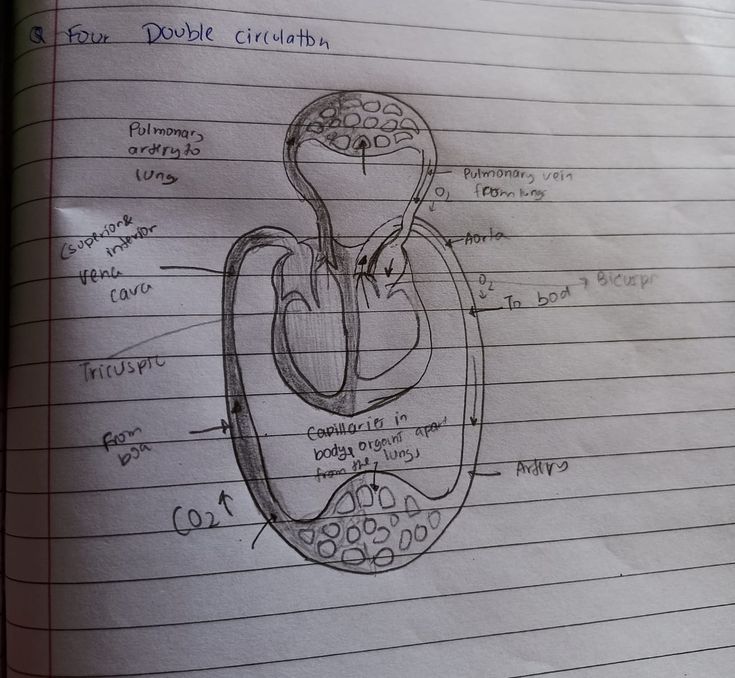 Q Four Double circulation
Pulmonary
artery to
lung
Pulmonary vein
from lungs
O2
(superior &
inferior
vena
cava
Aorta
O2
To bod
Bicuspi
Tricuspic
From
Capillaries in
body & organs apart
from the lungs
Artery
CO2